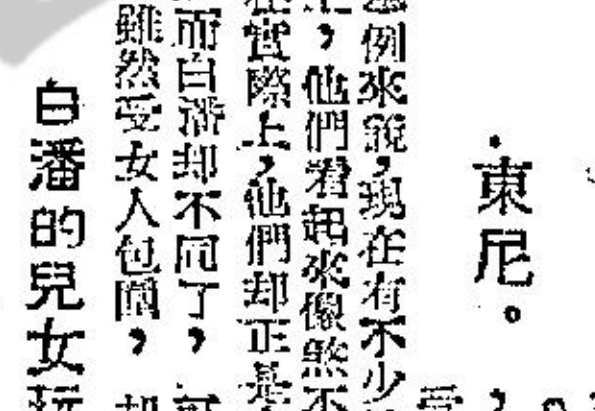 ·東尼。
例來說，現在有不少
，他們看起來像煞不
在實際上，他們却正是
而白潘却不同了，
雖然受女人包圍，却
白潘的兒女玩